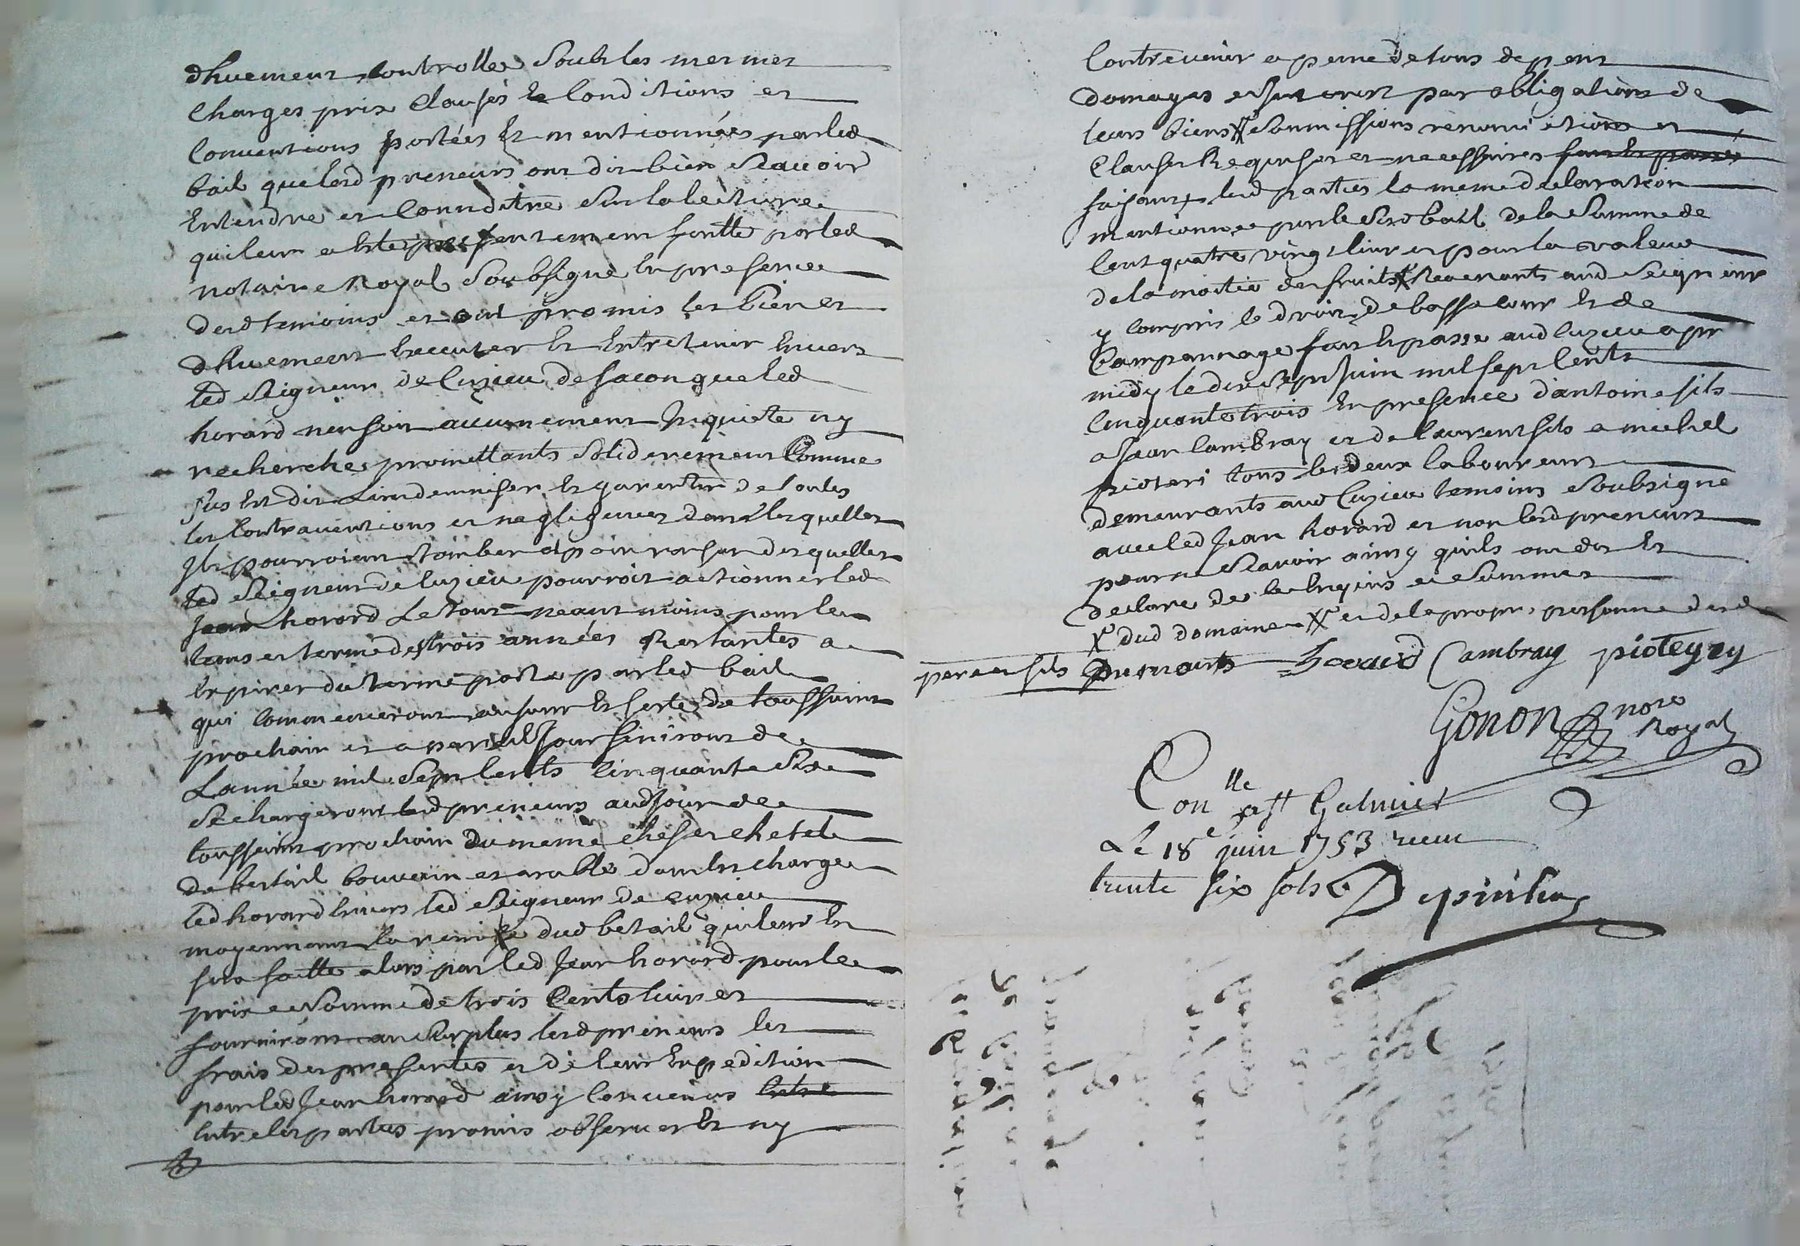 dhuement controlle soubs les mesmes
charges prix clauses et conditions et
conventions portées et mentionnées par led
bail que lesd preneurs ont dit bien scavoir
entendre et connoitre sur la lecture
qui leur a este presentement faitte par led
notaire Royal soubsigne en presence
desd temoins et ont promis les bien et
dhuement executer et entretenir envers
led seigneur de Cuzieu de facon que led
horard nen soit aucunement inquiete ny
recherche promettants solidairement comme
sus est dit lindemniser et garentir de toutes
les contraventions et negligences dans lesquelles
ils pourroient tomber et pour raison desquelles
led seigneur de Cuzieu pourroit actionner led
Jean horard Le tout neant moins pour le
tems et terme de trois années Restantes a
expirer du terme porte par led bail
qui commenceront au jour et feste de toussaint
prochain et a pareil jour finiront de
Lannée mil sept cents cinquante six
se chargeront lesd preneurs aud jour de
toussaint prochain du meme cheser chetel
de bestail bouvain et arable dont est charge
led horard envers led seigneur de cuzieu
moyennant la remise dud betail qui leur en
sera faitte alors par led Jean horard pour le
prix et somme de trois cents livres
fourniront au surplus lesd preneurs les
frais des presentes et de leur expedition
pour led Jean horard ainsy convenus entre
entre les parties promis observer et ny
contrevenir a peine de tous depens
domages et par obligations de
leurs biens X soumissions renonciations et
clauses Requises et necessaires fait et passé
faisant lesd parties la meme declaration
mentionnee par le susd bail de la somme de
cent quatre vingt livres pour la valeur
de la moitie des fruits X Revenants aud seigneur
y compris le droit de basse cour et de
Campannage fait et passe aud cuzieu apr
midy le dix sept juin mil sept cents
cinquante trois en presence dantoine fils
a Jean Cambray et de laurent fils a michel
pioteri tous les deux laboureurs
demeurants aud Cuzieu temoins soubsigne
avec led Jean horard et non lesd preneurs
pour ne scavoir ainsy quils ont dit et
declare de ce enquis et sommes
X dud domaine X et de la propr personne desd
pere et fils Dumonts horard Cambray pioteyry
Gonon nore
Royal
Con lle a st Galmier
Le 18e juin 1753 recu
trente six sols Depinhac